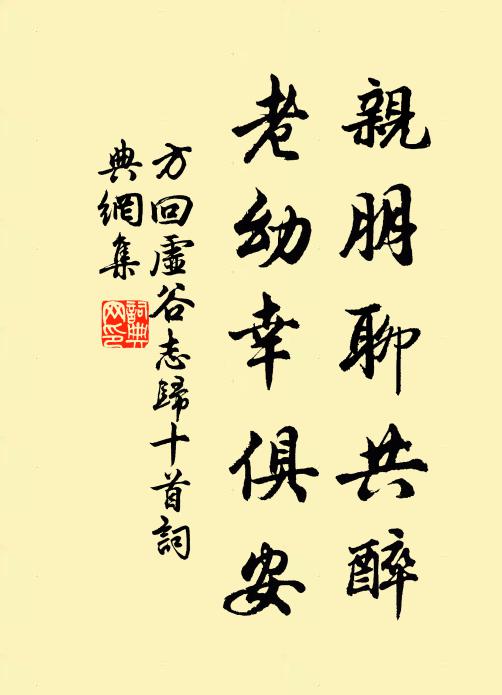 親朋聊共醉
老幼幸俱安
方回虛谷志歸十首詞
典網集
詞典網印